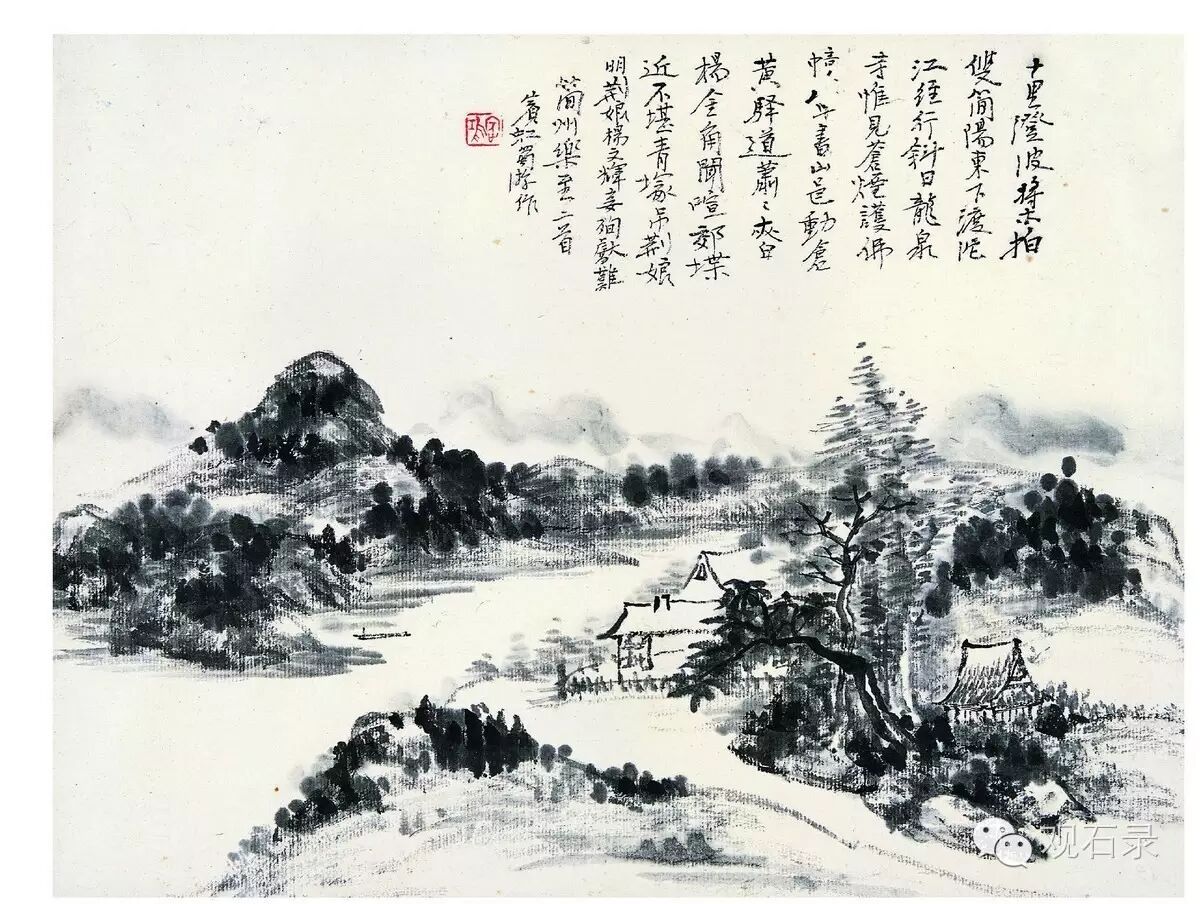 十里澄波槳未拍
雙簡陽東下渡沱
江經行斜日龍泉
寺惟見蒼煙護佛
幢 畫山邑動倉
黄驛道蕭〻夾白
楊金角聞喧郊堞
近不堪青塚吊荆娘
明荆娘楊文輝妾殉獻難
簡州樂至二首
賓虹蜀游作
观石录